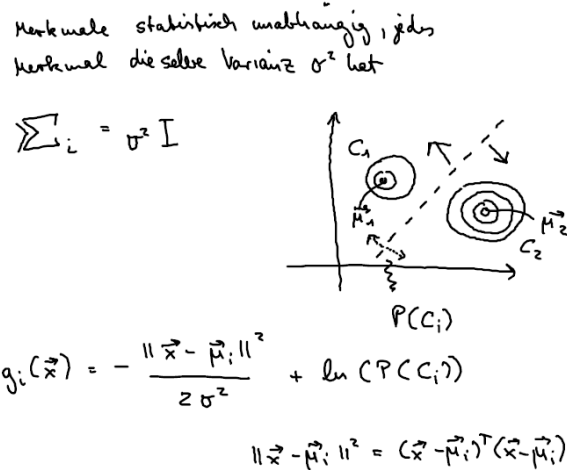 Merkmale statistisch unabhängig, jedes
Merkmal die selbe Varianz σ² hat
Σᵢ = σ² I
C₁
μ⃗₁
μ⃗₂
C₂
P(Cᵢ)
gᵢ(x⃗) = - ||x⃗ - μ⃗ᵢ||² / 2σ² + ln(P(Cᵢ))
||x⃗ - μ⃗ᵢ||² = (x⃗ - μ⃗ᵢ)ᵀ(x⃗ - μ⃗ᵢ)